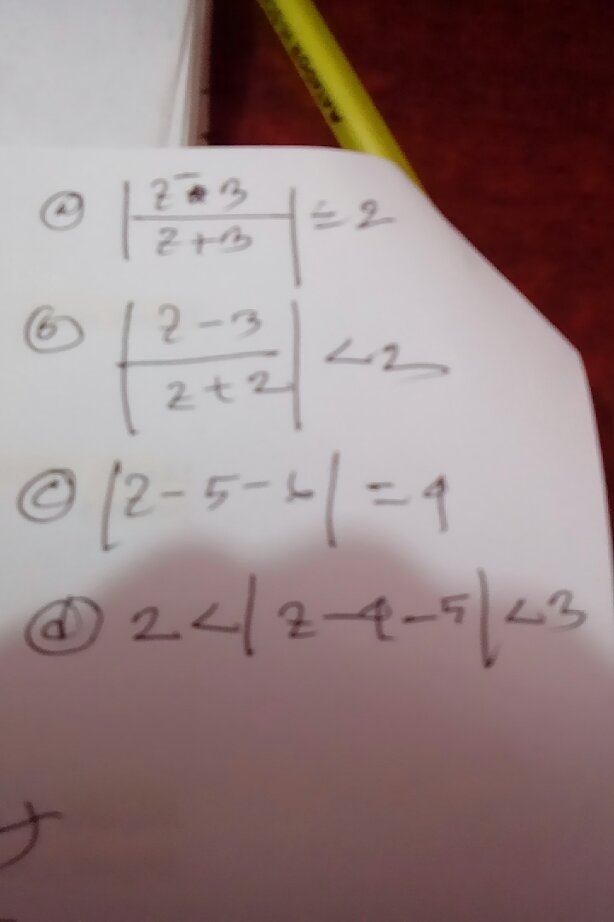 (a) |(z-3)/(z+3)| = 2
(b) |(z-3)/(z+2)| < 2
(c) |z-5-i| = 4
(d) 2 < |z-4-5| < 3